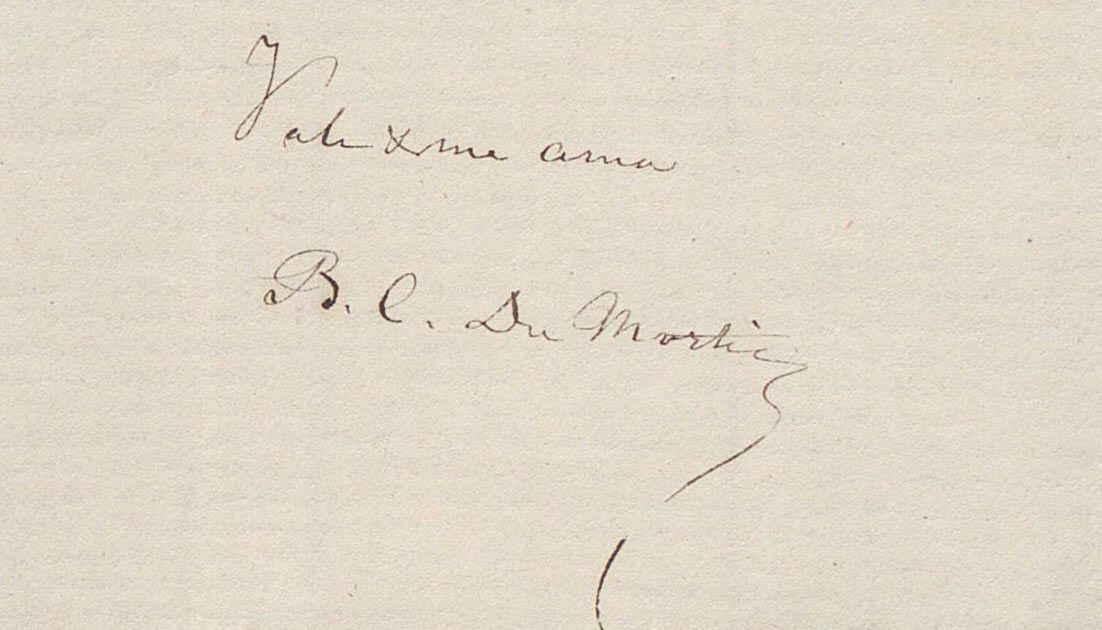 Vale & me ama
B. C. Du Mortier